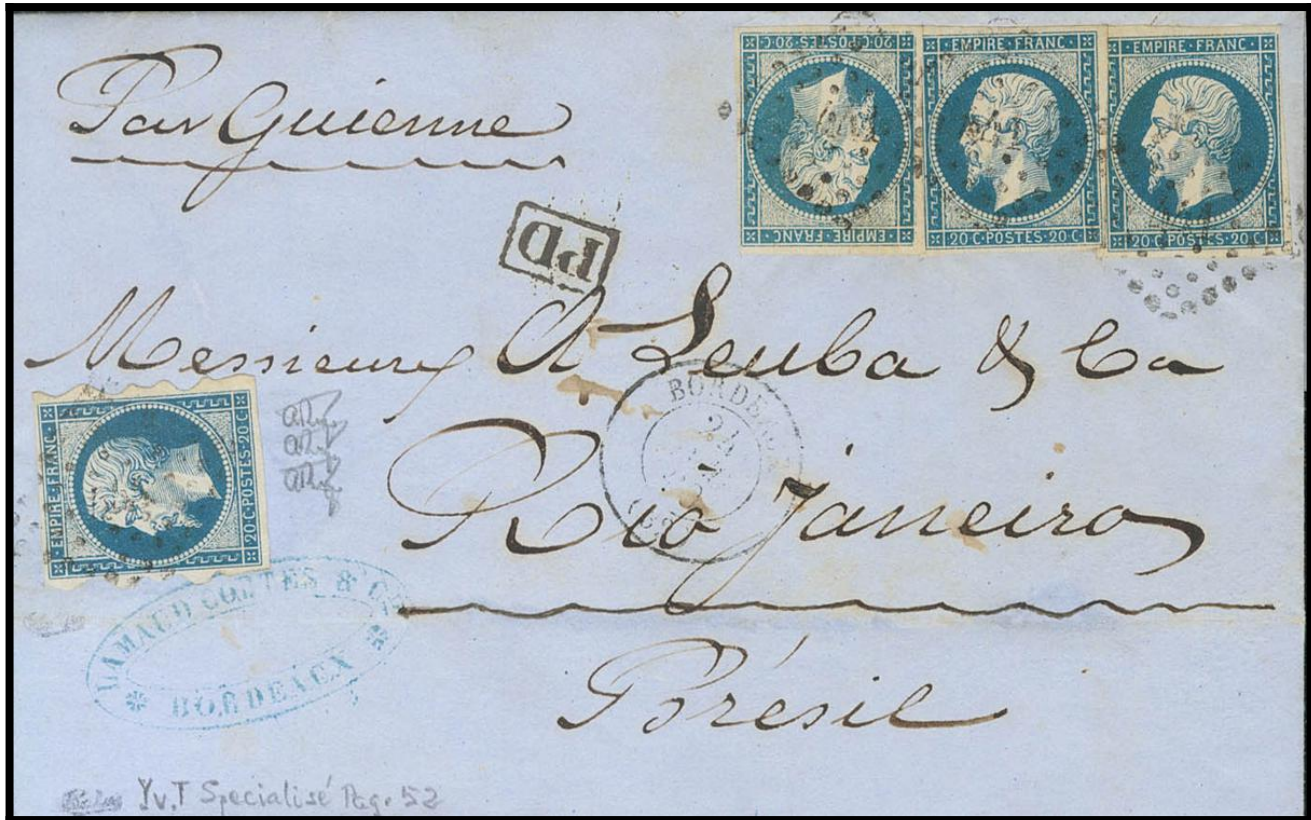 Par Guienne
20·C·POSTES·20·C
EMPIRE·FRANC·
EMPIRE·FRANC·
20·C·POSTES·20·C
EMPIRE·FRANC·
20·C·POSTES·20·C
PD
Messieurs A Leuba & Ca
BORDEAUX
24
Rio Janeiro
Brésil
EMPIRE·FRANC·
20·C·POSTES·20·C
DAMAUD CORTES & Cie
BORDEAUX
Yv.T Specialisé Pag. 52